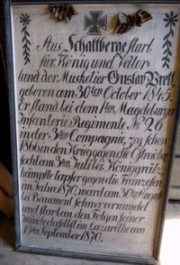 Aus Schattberge starb
für König und Vater
land der Musketier Gustav Brett
geboren am 30ten October 1845.
Er stand bei dem 1ten Magdeburger
Infanterie Regimente № 26
in der 3ten Compagnie, zog schon
1866 in den Krieg gegen die Östreicher
focht am 3ten Juli bei Königgrätz
kämpfte tapfer gegen die Franzosen
im Jahre 1870, ward am 30ten August
bei Beaumont schwer verwundet
und starb an den Folgen seiner
Wunde im Lazarethe am
September 1870.